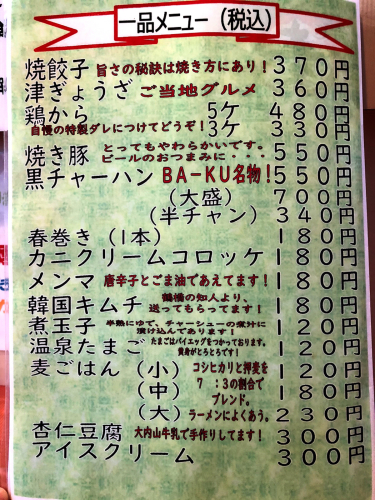 一品メニュー（税込）
焼餃子 旨さの秘訣は焼き方にあり！ 370円
津ぎょうざ ご当地グルメ 360円
鶏から 5ケ 480円
自慢の特製ダレにつけてどうぞ！ 3ケ 330円
焼き豚 とってもやわらかいです。 550円
ビールのおつまみに・・・
黒チャーハン BA-KU名物！ 550円
（大盛） 700円
（半チャン） 340円
春巻き（1本） 180円
カニクリームコロッケ 180円
メンマ 唐辛子とごま油であえてます！ 180円
韓国キムチ 鶴橋の知人より、 180円
送ってもらってます！
煮玉子 半熟にゆで、チャーシューの煮汁に 120円
漬け込んであります！
温泉たまご たまごはパイエッグをつかっております。 120円
黄身がとろとろです！
麦ごはん（小） コシヒカリと押麦を 120円
（中） 7：3の割合で 180円
ブレンド。
（大） ラーメンによくあう。 230円
杏仁豆腐 大内山牛乳で手作りしてます！ 300円
アイスクリーム 300円